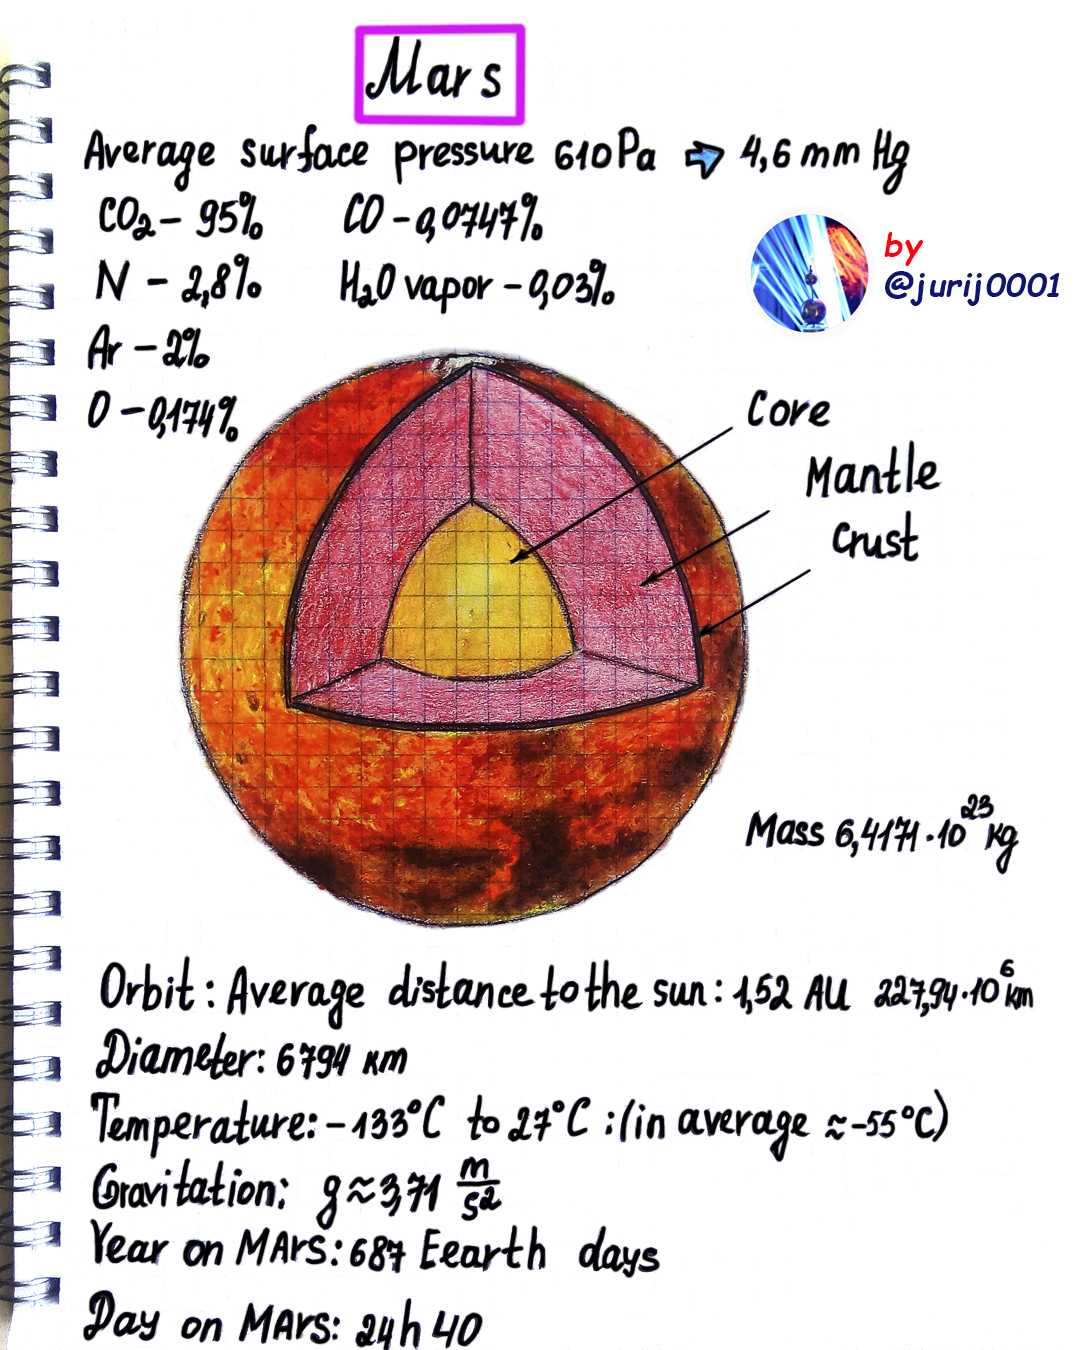 Mars
Average surface pressure 610Pa ⇨ 4,6 mm Hg
CO₂ – 95% CO – 0,0747%
N – 2,8% H₂O vapor – 0,03%
by
@jurij0001
Ar – 2%
O – 0,174%
Core
Mantle
Crust
Mass 6,4171·10²³ kg
Orbit: Average distance to the sun: 1,52 AU 227,94·10⁶ km
Diameter: 6794 км
Temperature: –133°C to 27°C :(in average ≈ -55°C)
Gravitation: g ≈ 3,71 m/s²
Year on MArs: 687 Eearth days
Day on MArs: 24h 40